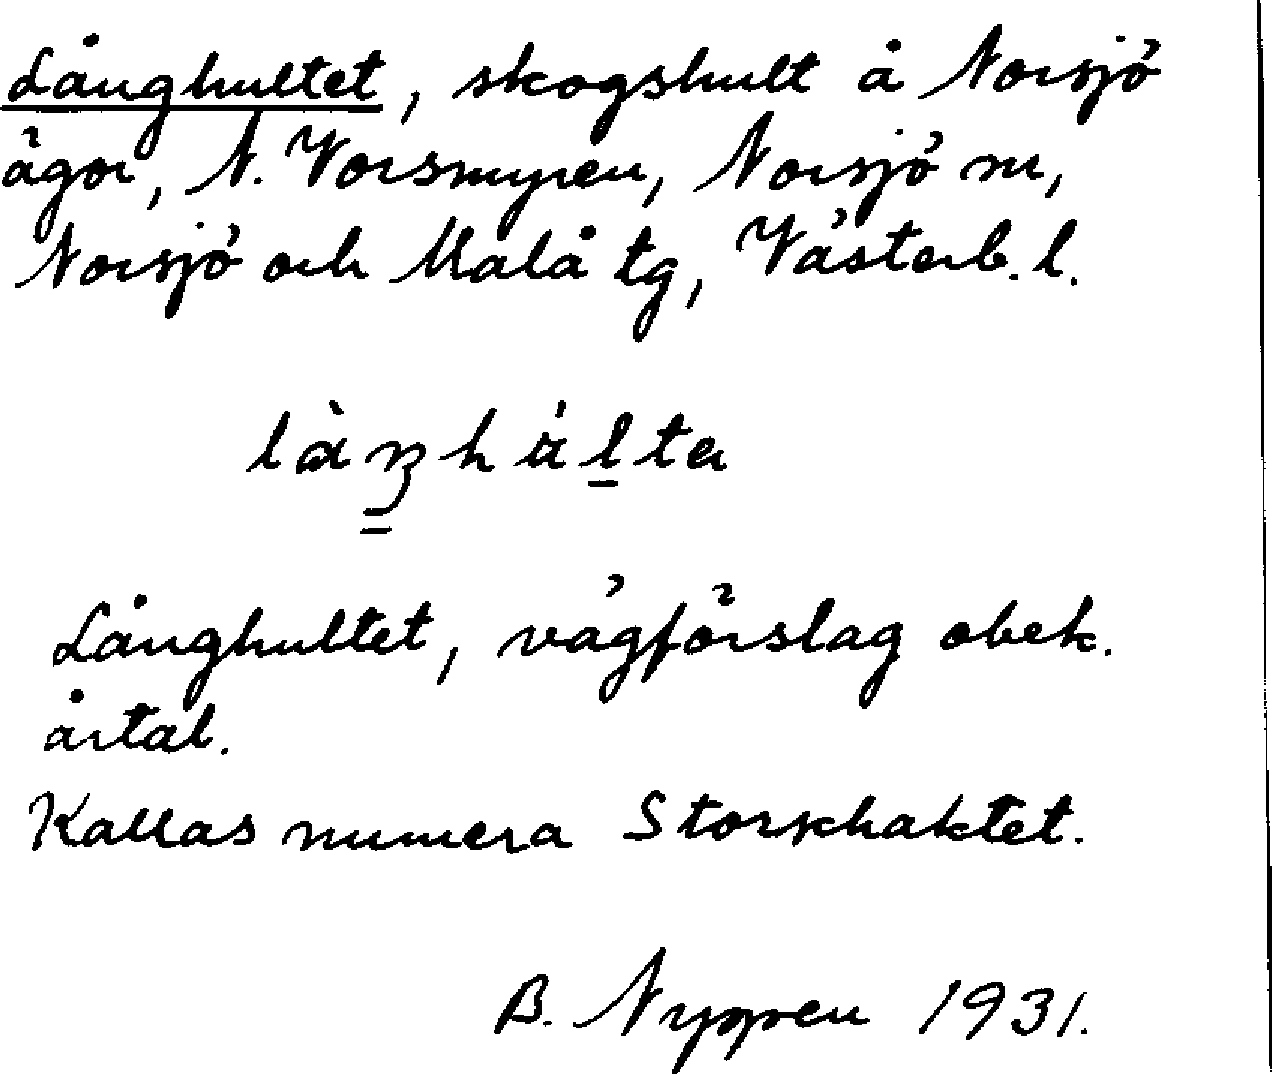 Långhultet, skogshult å Norsjö
ägor, N. Vorsmyren, Norsjö sn,
Norsjö och Malå tg, Västerb. l.
Långhultet, vägförslag obek.
årtal.
Kallas numera Storskhaktet.
B. Nygren 1931.